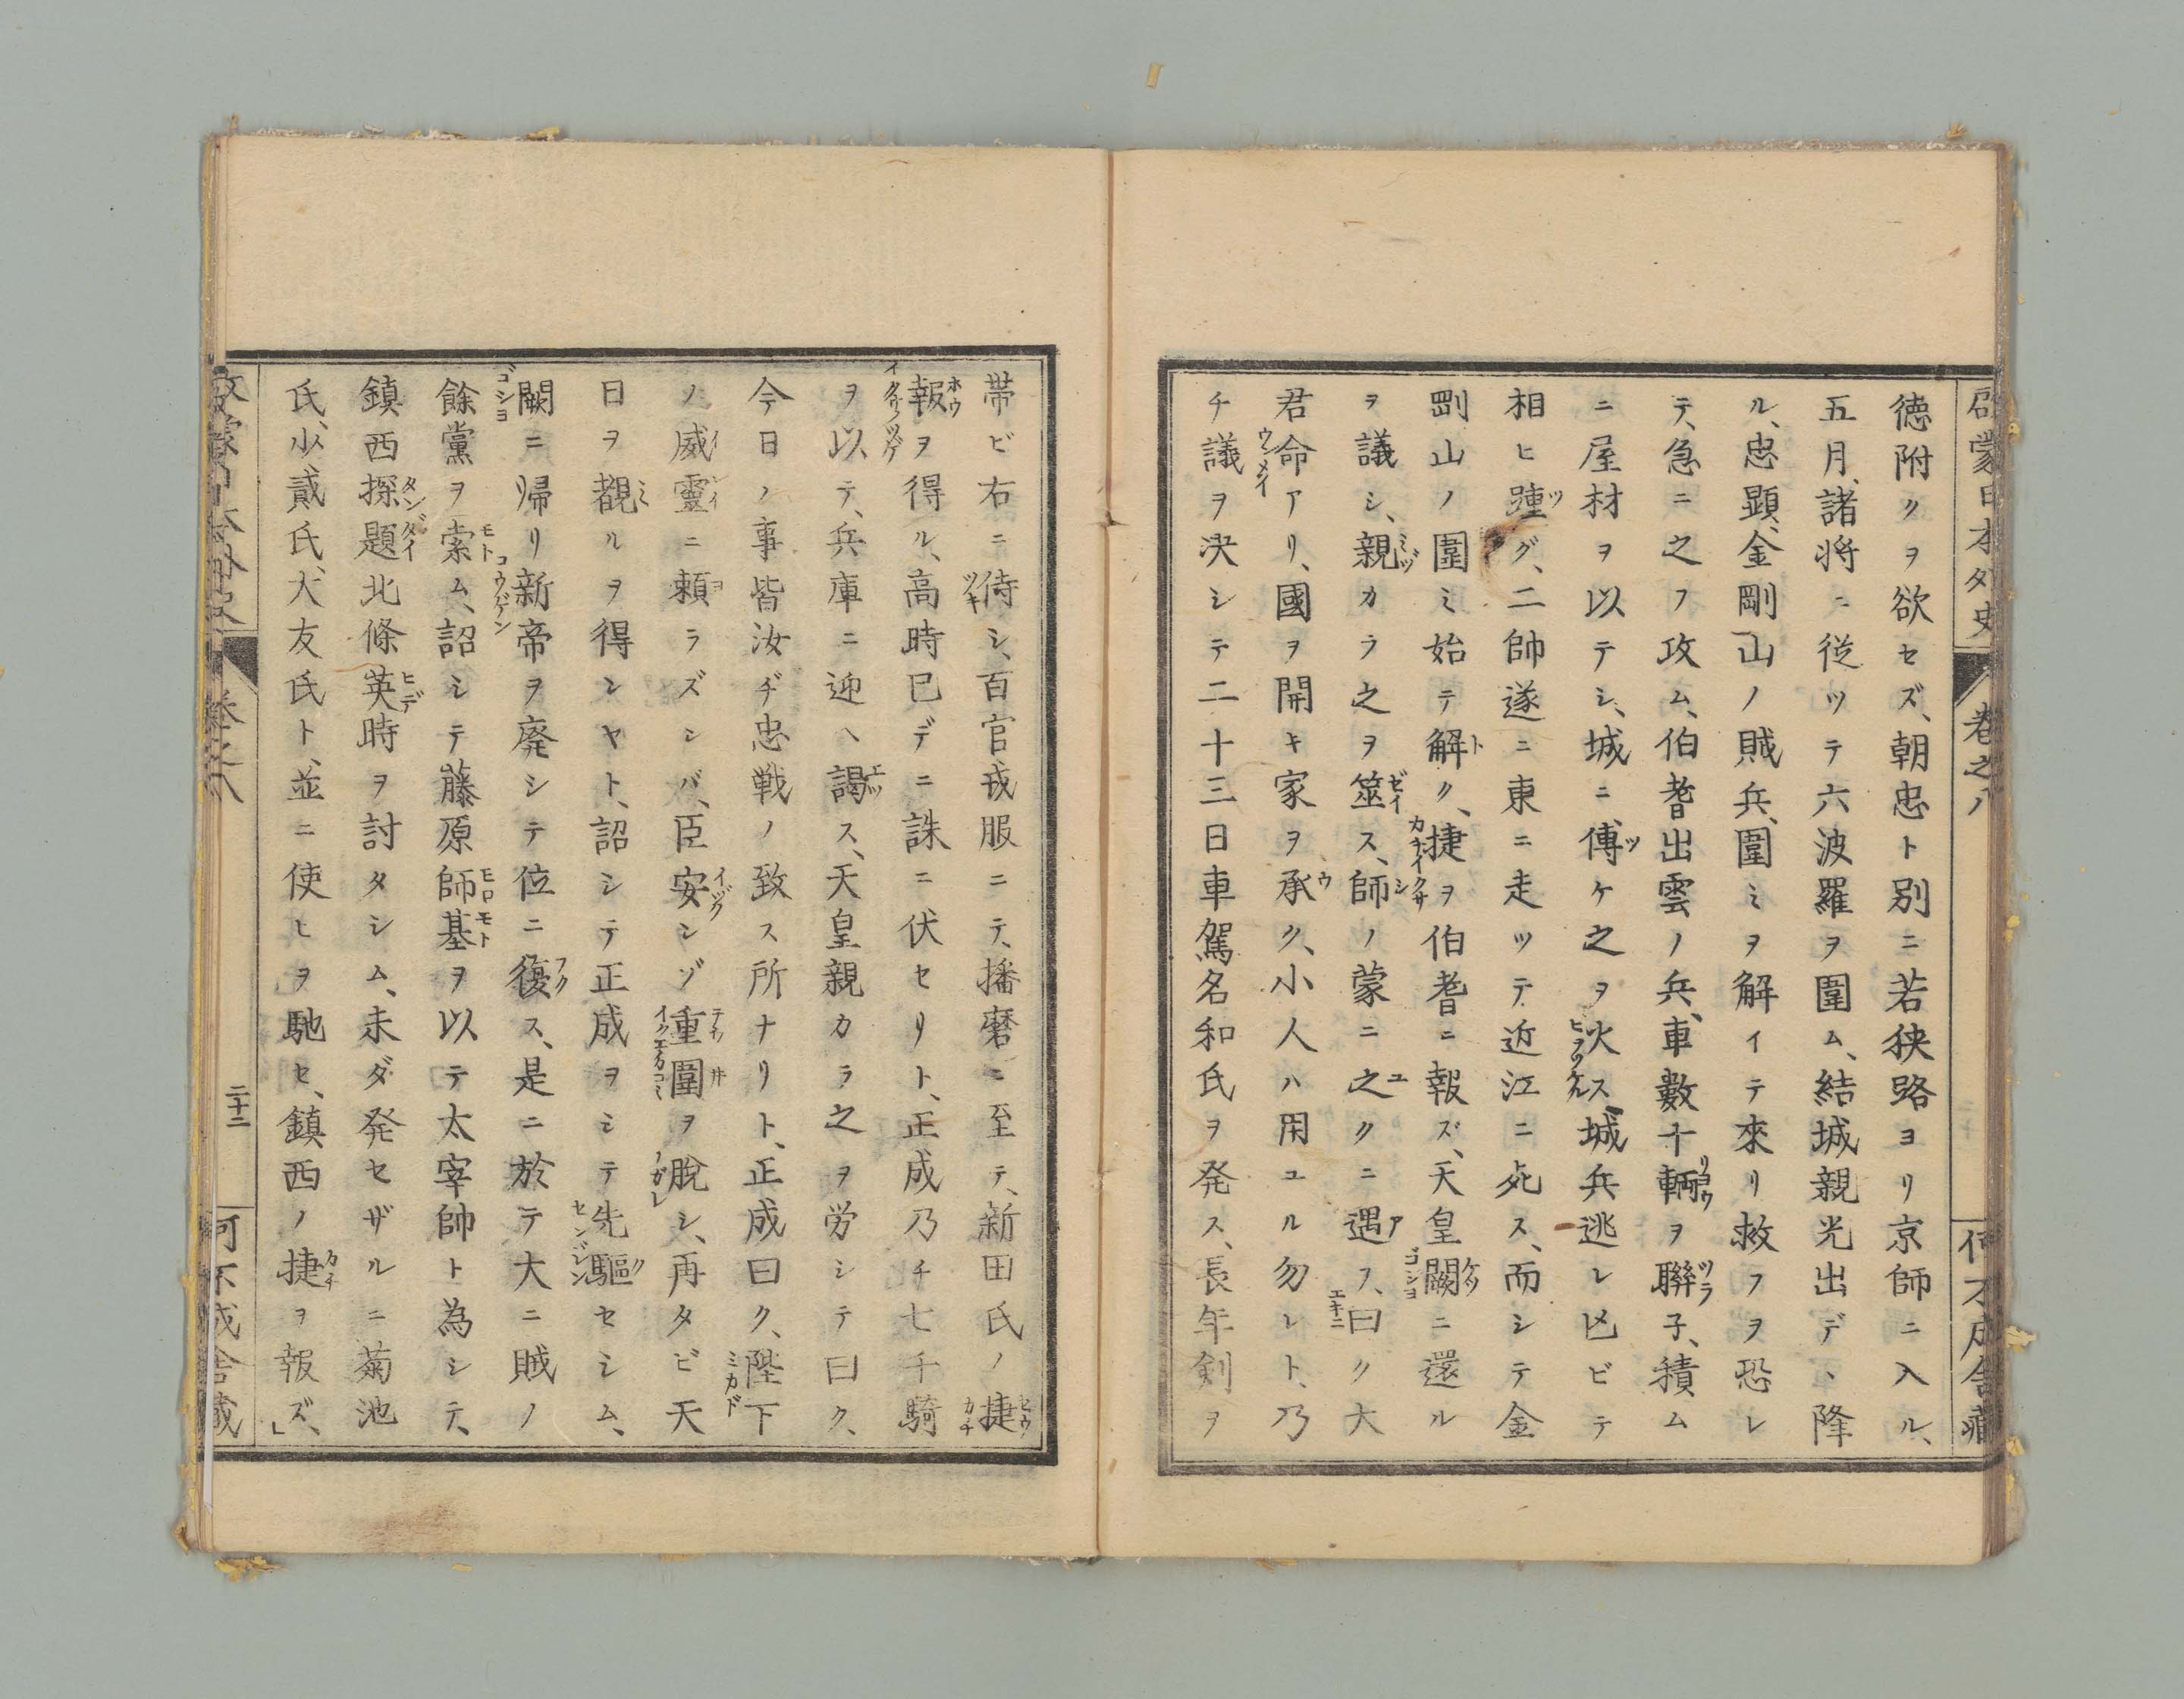 啓蒙日本外史 巻之八 何不成舎蔵
徳附クヲ欲セズ、朝忠ト別ニ若狭路ヨリ京師ニ入ル、
五月、諸将ニ従ツテ六波羅ヲ圍ム、結城親光出デ、降
ル、忠顕、金剛山ノ賊兵、圍ミヲ解イテ來リ救フヲ恐レ
テ、急ニ之ヲ攻ム、伯耆出雲ノ兵、車數十輌ヲ聯子、積ム
ニ屋材ヲ以テシ、城ニ傅ケ之ヲ火ス、城兵逃レ凶ビテ
相ヒ踵グ、二帥遂ニ東ニ走ツテ近江ニ死ス、而シテ金
剛山ノ圍ミ始テ解ク、捷ヲ伯耆ニ報ズ、天皇闕ニ還ル
ヲ議シ、親カラ之ヲ筮ス、師ノ蒙ニ之クニ遇フ、曰ク大
君命アリ、國ヲ開キ家ヲ承ク、小人ハ用ユル勿レト、乃
チ議ヲ決シテ二十三日車駕名和氏ヲ発ス、長年剣ヲ
帯ビ右ニ侍シ、百官戎服ニテ、播磨ニ至テ、新田氏ノ捷
報ヲ得ル、高時已デニ誅ニ伏セリト、正成乃チ七千騎
ヲ以テ、兵庫ニ迎ヘ謁ス、天皇親カラ之ヲ労シテ曰ク、
今日ノ事皆汝ヂ忠戦ノ致ス所ナリト、正成曰ク、陛下
ノ威靈ニ頼ラズンバ、臣安ンゾ重圍ヲ脱シ、再タビ天
日ヲ覩ルヲ得ンヤト、詔シテ正成ヲシテ先驅セシム、
闕ニ帰リ新帝ヲ廃シテ位ニ復ス、是ニ於テ大ニ賊ノ
餘黨ヲ索ム、詔シテ藤原師基ヲ以テ太宰帥ト為シテ、
鎮西探題北條英時ヲ討タシム、未ダ発セザルニ菊池
氏、少貳氏、大友氏ト、並ニ使ヒヲ馳セ、鎮西ノ捷ヲ報ズ、」
啓蒙日本外史 巻之八 二十二 何不成舎蔵